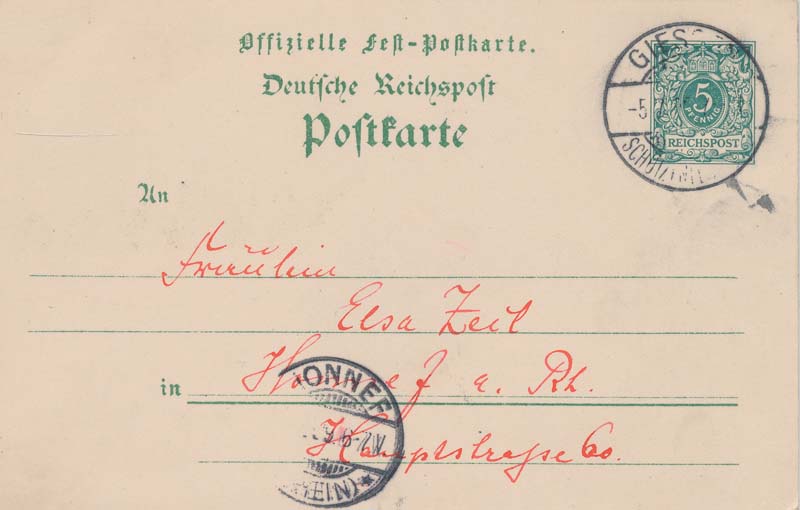 Offizielle Fest-Postkarte.
Deutsche Reichspost
Postkarte
5
PFENNIG
REICHSPOST
An
Fräulein
Elsa Zeil
in Honnef a. Rh.
Hauptstraße 60.